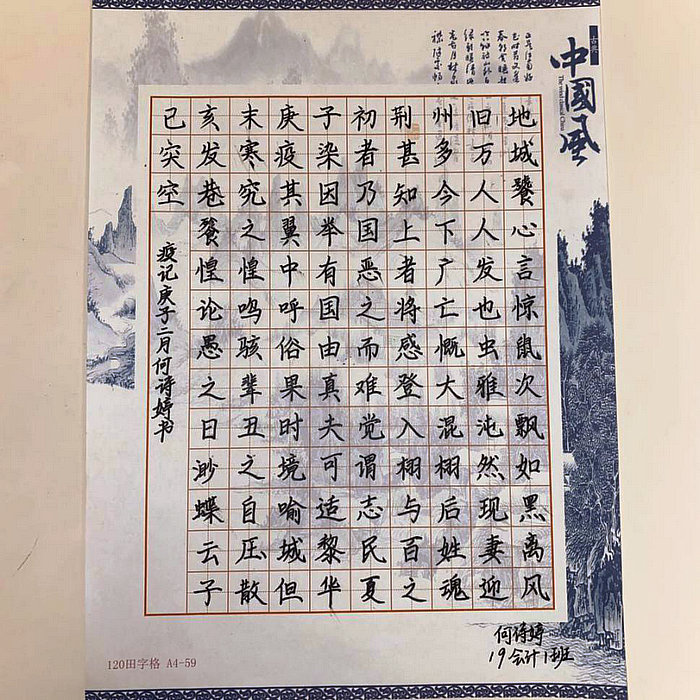 古典
中國風
已亥末庚子初荆州旧地
突发寒疫染者甚多万城
空巷究其因乃知今人饕
餮之翼举国上下人心
惶惶中有恶者广发言
论鸣呼国之将亡也惊
愚骇俗由而感慨虫鼠
之辈果真难登大雅次
日丑时夫觉入混沌飘
渺之境可谓栩栩然如
蝶自喻适志与后现黑
云压城黎民百姓妻离
子散但华夏之魂迎风
疫记庚子二月何诗婷书
何诗婷
19会计1班
120田字格 A4-59